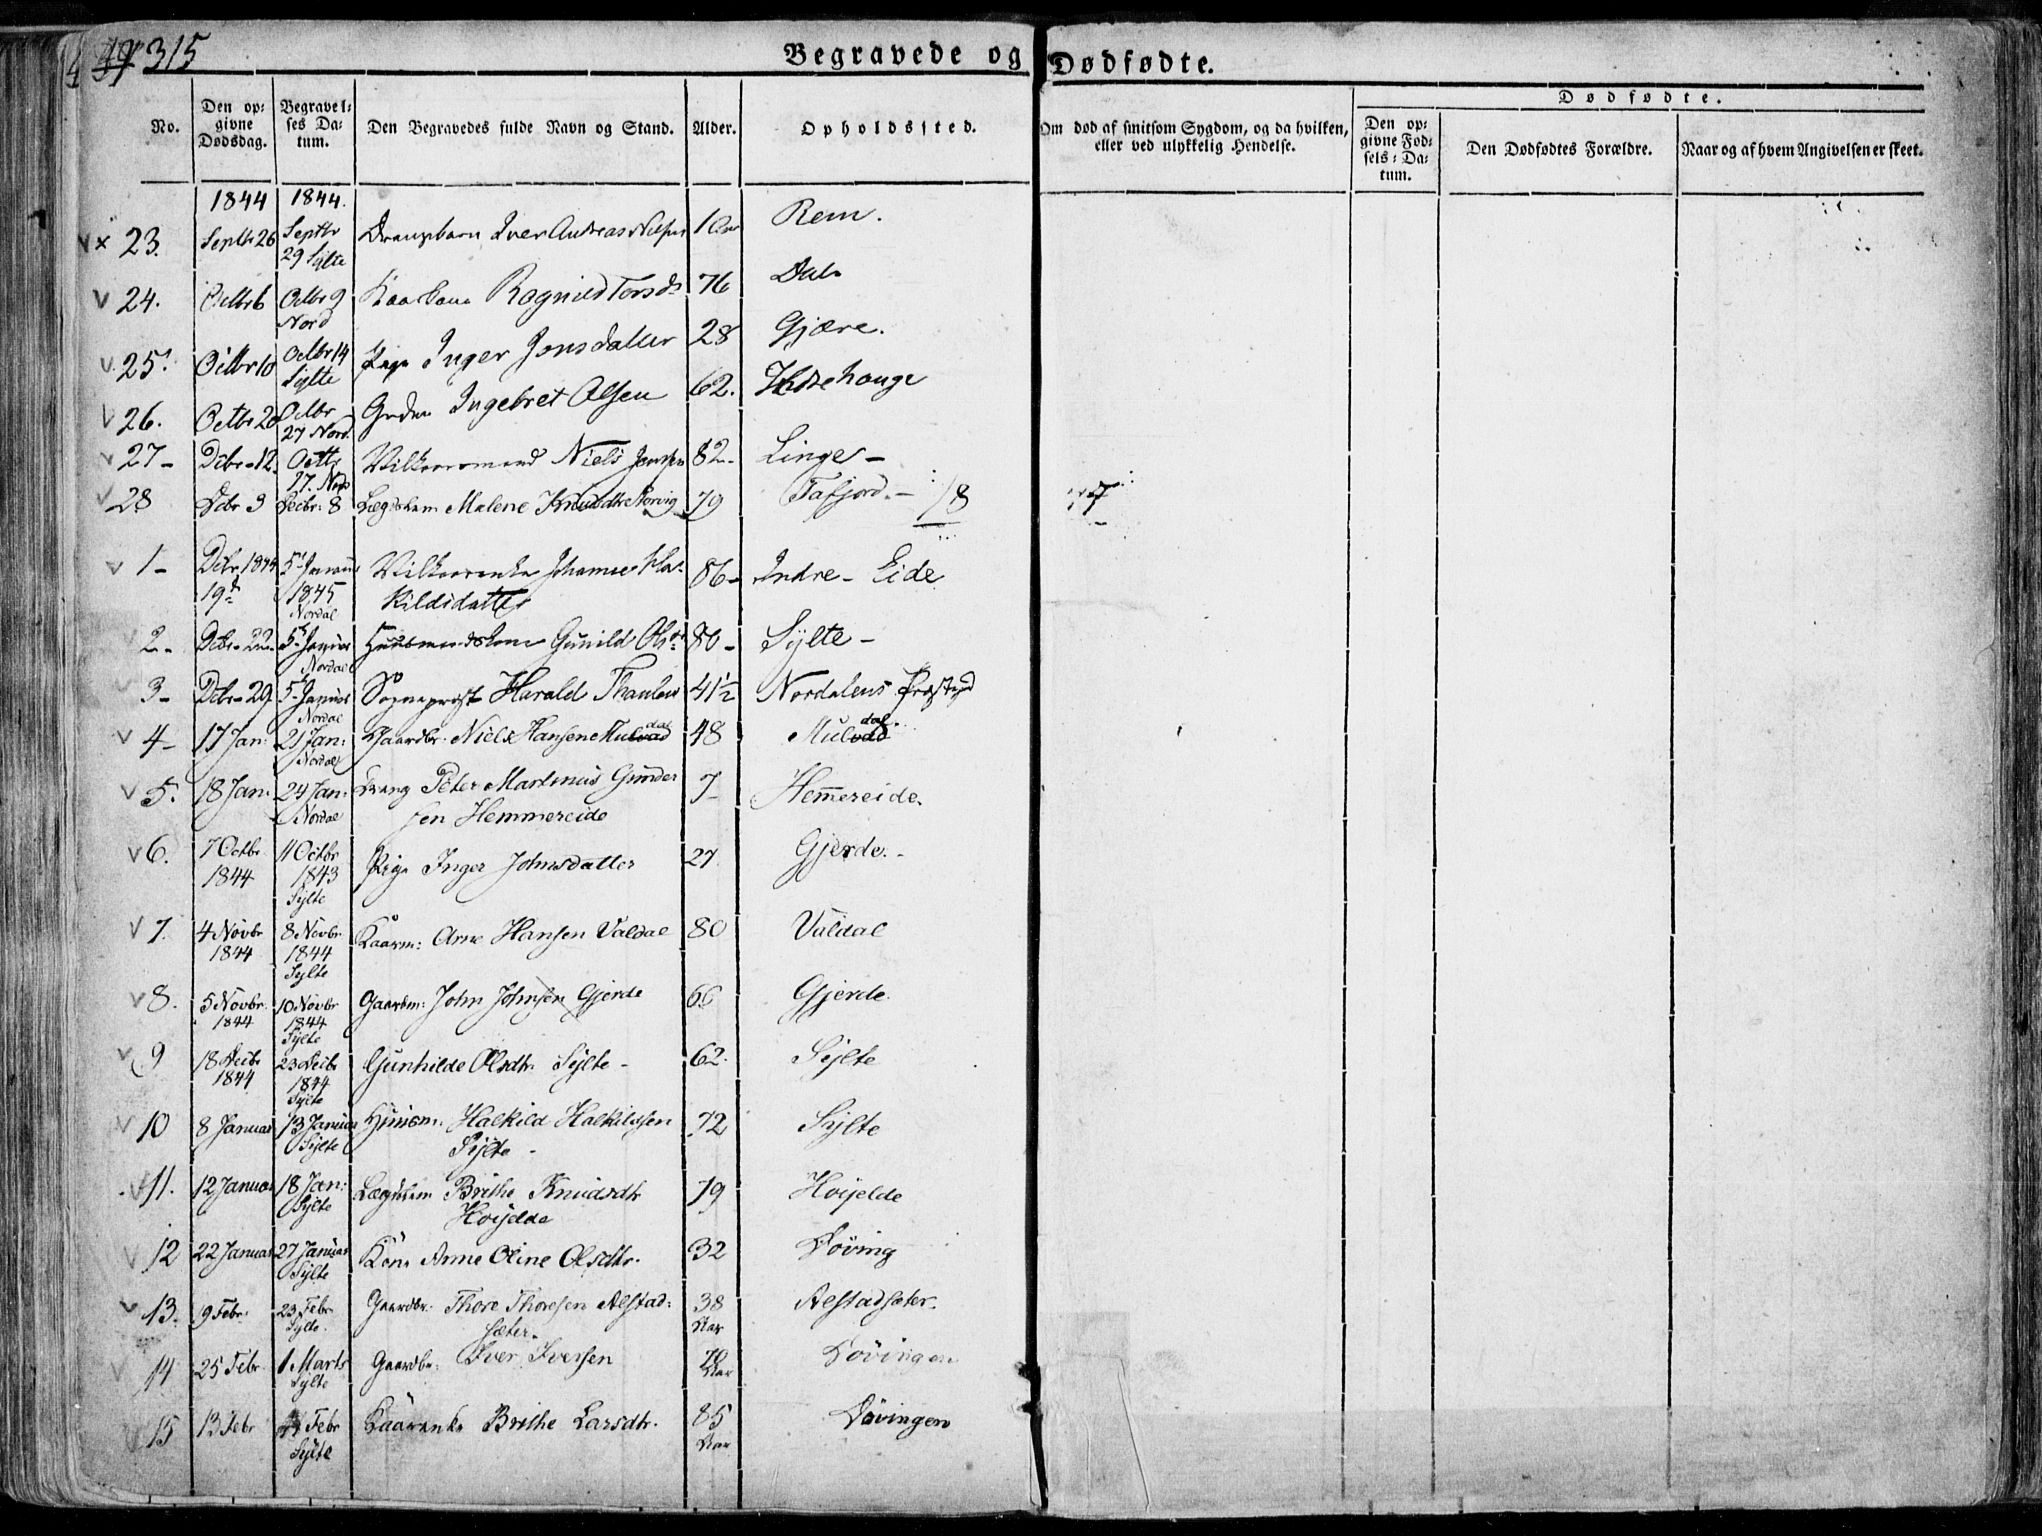 315
Begravede og Dødfødte.
No.
Den opgivne Dødsdag.
Begravelses Datum.
Den Begravedes fulde Navn og Stand.
Alder.
Opholdssted.
Om død af smitsom Sygdom, og da hvilken, eller ved ulykkelig Hendelse.
Dødfødte.
Den opgivne Fødsels-Datum.
Den Dødfødtes Forældre.
Naar og af hvem Angivelsen er skeet.
1844 1844.
23. Septbr 26 Septbr 29 Sylte Drengebarn Iver Andreas Nilsen Rem.
24. Octbr 6 Octbr 9 Nord Ragnild Torsd. 76 Dale
25. Octbr 10 Octbr 14 Sylte Pige Inger Jonsdatter 28 Gjære.
26. Octbr 20 Octbr 27 Nord. Ingebret Olsen 62.
27- Dcbr. 12. 17. Nord Vilkaarsmand Niels Jensen 82- Linge-
28 Dcbr 3 Decbr: 8 Lægdslem Malene Knudsdtr Norvig 79 Tafjord.- 18 17
1- Dcbr 1844 19d 5t Januar 1845 Nordal Vilkaarenke
kildsdatter 86- Indre- Eide
2- Dcbr. 22. 5t Januar Nordal Huusmandskone Gunild Ols. 80- Sylte-
3- Dcbr. 29. 5t Januar Nordal Sogneprest Harald Thaulow 41½ Nordalens Præstegd
4- 17 Jan: 21 Jan: Nordal Gaardbr. Niels Hansen Muldal 48 Muldal
5. 18 Jan: 24 Jan: Nordal Dreng Peter Martinus Gunder
sen Hemmereide 7- Hemmereide.
6. 7 Octbr 1844 11 Octbr 1843 Sylte Pige Inger Johnsdatter 27. Gjerde.-
7. 4 Novbr 1844 8 Novbr 1844 Sylte Kaarm: Arne Hansen Valdal 80 Valdal
8. 5 Novbr. 1844 10 Novbr 1844 Sylte Gaardm: John Johnsen Gjerde 66 Gjerde
9 18 Decbr 1844 23 Decbr 1844 Sylte Gunhilde Olsdtr. Sylte- 62. Sylte
10 8 Januar 13 Januar Sylte Huusm. Halkild Halkildsen
Sylte- 72 Sylte
11. 12 Januar 18 Jan: Sylte Lægdslem Brithe Knudsdtr
Høijelde 79 Høijelde
12 22 Januar 27 Januar Sylte Kone Anne Oline Olsdtr. 32 Døving
13. 9 Febr. 23 Febr. Sylte. Gaardbr. Thore Thoresen Alstad-
sæter. 38 Aar Alstadsæter.
14 25 Febr 1 Marts Sylte Gaardbr: Iver Iversen 78 Aar Døvingen
15 13 Febr Febr Sylte Kaarenke Brithe Larsdtr. 85 Aar Døvingen